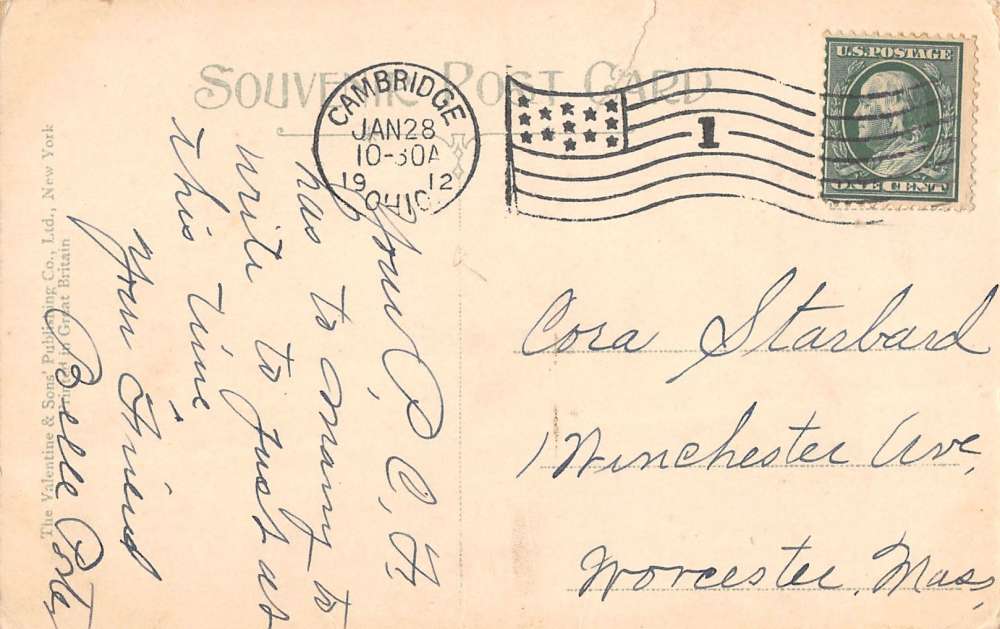 SOUVENIR POST CARD
CAMBRIDGE
JAN 28
10-30A
19 12
OHIO
1
U.S. POSTAGE
ONE CENT
Cora Starbard
Winchester Ave,
Worcester, Mass,
Your P. C. F.
has to many to
write to Just us
this time
your Friend
Belle Porter
The Valentine & Sons' Publishing Co., Ltd., New York
Printed in Great Britain